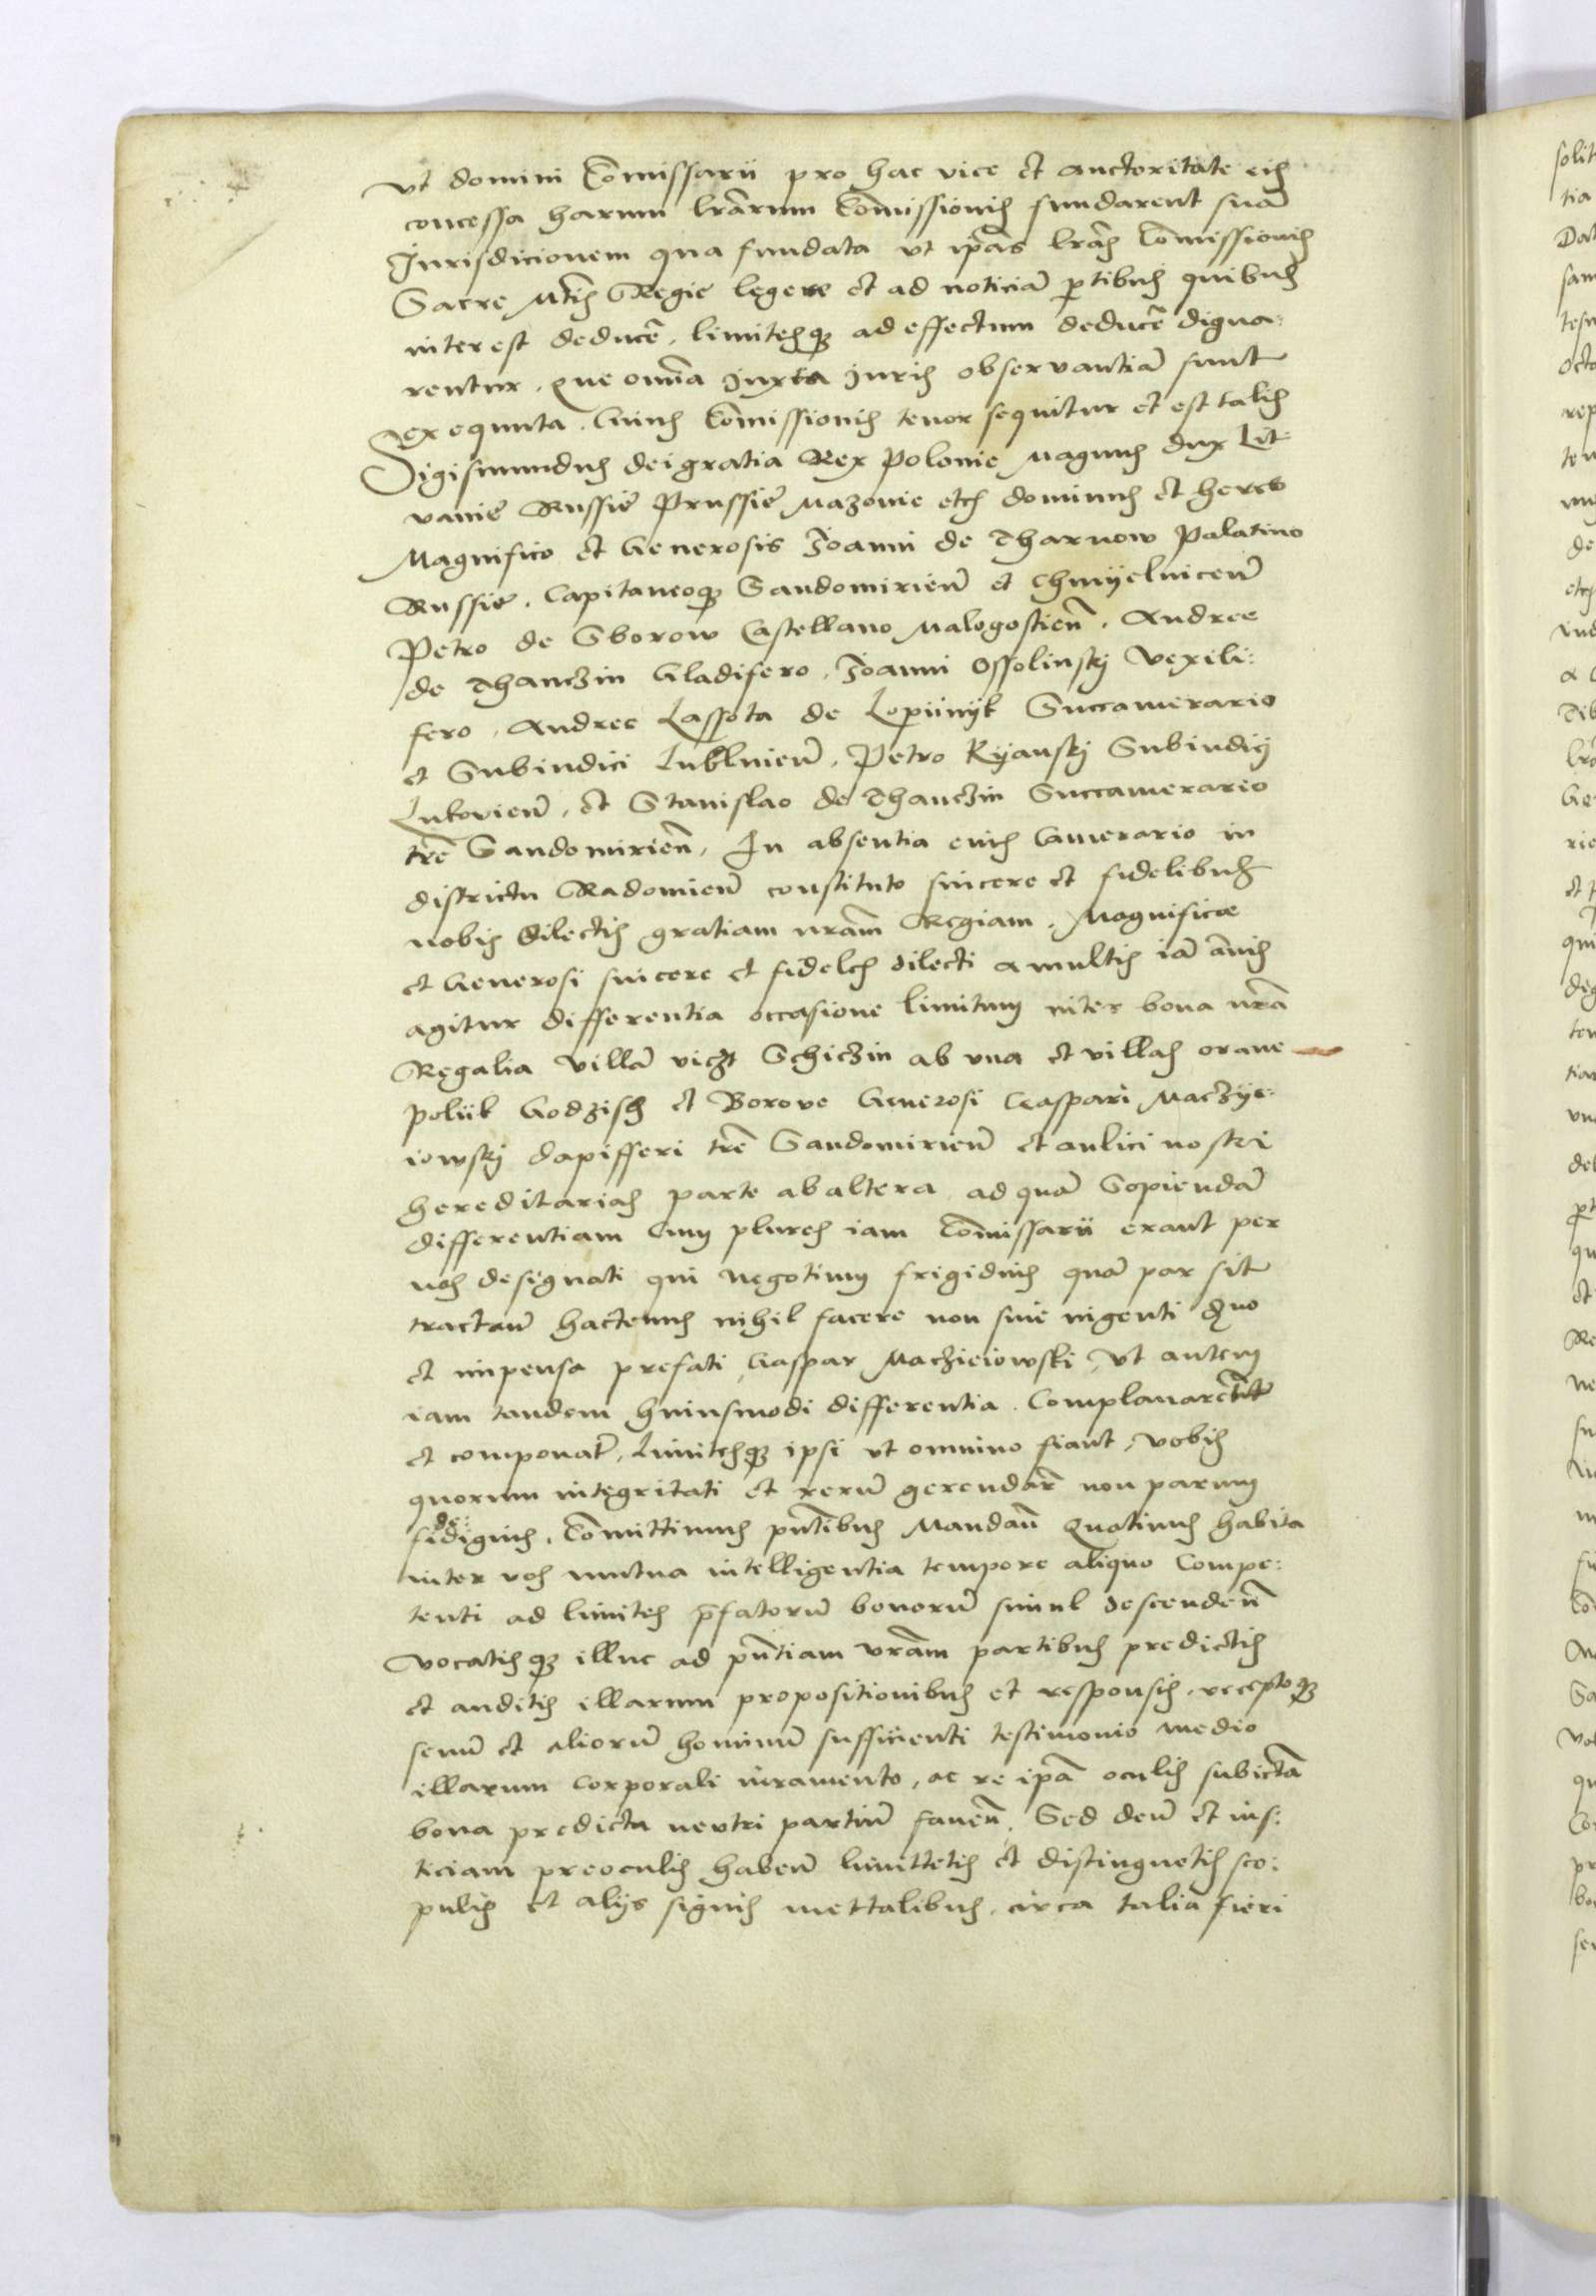 Vt domini Com̄issarii pro hac vice et auctoritate eis
concessa harum lr̄arum Com̄issionis fundarent suā
Jurisdicionem qua fundata vt ip̄as lr̄as Com̄issionis
Sacre Mtis̄ Regie legere et ad noticiā ꝑtibus quibus
interest deducē, limitesqꝫ ad effectum deducē digna:
rentur. Que om̄ia Juxta Juris observantiā sunt
exequuta. Cuius Com̄issionis tenor sequitur et est talis
Sigismundus dei gratia Rex Polonie Magnus dux Lit:
vanie Russie Prussie Mazovie etcs dominus et heres
Magnifico et Generosis Joanni de Tharnow Palatino
Russie, Capitaneoqꝫ Sandomirien̄ et Chmyelnicen̄
Petro de Sborow Castellano Malogostien̄, Andree
de Thanczin Gladifero, Joanni Ossolinskÿ Vexili:
fero, Andree Lassota de Lopiinÿk Succamerario
et Subiudici Lublinien̄, Petro Kÿanskÿ Subiudicÿ
Lukovien̄, et Stanislao de Thanczin Succamerario
tre̅ Sandomirien̄, In absentia euis Camerario in
districtu Radomien̄ constituto sincere et fidelibus
nobis dilectis gratiam nr̄am Regiam. Magnifice
et Generosi sincere et fideles dilecti a multis iā an̄is
agitur differentia occasione limitum inter bona nr̄a
Regalia villā vicꝫt Schiczin ab vna et villas orane
poliik Godzisch et Borove Generosi Caspari Maczÿe:
iowskÿ dapifferi tre̅ Sandomirien̄ et aulici nostri
hereditarias parte ab altera ad quā Sopiendā
differentiam Cum plures iam Com̄issarii erant per
nos designati qui negotium frigidius quā par sit
tractan̄ hactenus nihil facere non sine ingenti dno
et impensa prefati Gaspar Machieiowski, Vt autem
iam tandem huiusmodi differentia. Complanaretur
et componat̄, Limitesqꝫ ipsi vt omnino fiant, vobis
quorum integritati et rerū gerendar̄ non parum
fidigius de:, Com̄ittimus pn̄tibus Mandan̄ Quatinus habita
inter vos mutua intelligentia tempore aliquo Compe:
tenti ad limites p̄fatorū bonorū simul descenden̄
Vocatisqꝫ illuc ad pn̄tiam vr̄am partibus predictis
et auditis illarum propositionibus et responsis, receptoqꝫ
senū et aliorū hominū sufficienti testimonio medio
illarum Corporali iuramento, ac re ip̄a oculis subiectā
bona predicta neutri partiū faven̄, Sed deū et ius:
ticiam preoculis haben̄ limittetis et distinguetis sco:
pulis et alÿs signis mettalibus, circa talia fieri